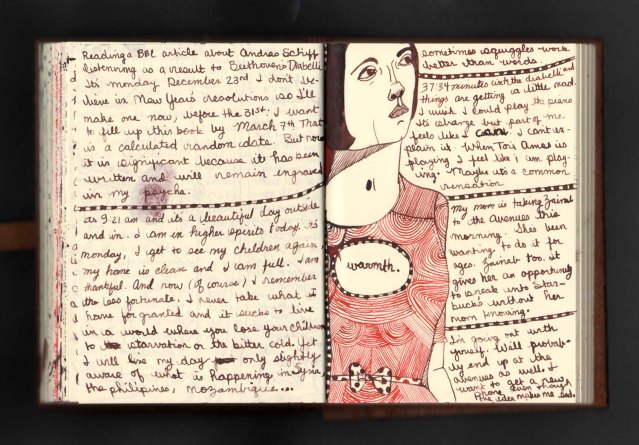 Reading a BBC article about Andras Schiff
listening as a result to Beethoven's Diabelli
Its monday December 23rd I don't be-
lieve in New Year's resolutions so I'll
make one now, before the 31st: I want
to fill up this book by March 7th That
is a calculated random date. But now
it is significant because it has been
written and will remain engraved
in my psyche.
its 9:21 am and its a beautiful day outside
and in. I am in higher spirits today. its
monday, I get to see my children again
my home is clean and I am full. I am
thankful. And now (of course) I remember
the less fortunate. I never take what I
have for granted and it sucks to live
in a world where you lose your children
to starvation or the bitter cold. Yet
I will live my day only slightly
aware of what is happening in Syria,
the philipines, Mozambique...
warmth.
sometimes squiggles work
better than words
37:34 minutes into the diabelli and
things are getting a little mad
I wish I could play the piano
Its strange but part of me
feels like I can I cant ex-
plain it. When Tori Amos is
playing I feel like I am play-
ing. Maybe its a common
sensation
My mom is taking Zainab
to the Avenues this
morning. She's been
wanting to do it for
ages. Zainab too. it
gives her an opportunity
to sneak into Star-
bucks without her
mom knowing.
I'm going out with
Yousef. We'll probab-
ly end up at the
avenues as well. I
want to get a new
Phone even though
the idea makes me sad.